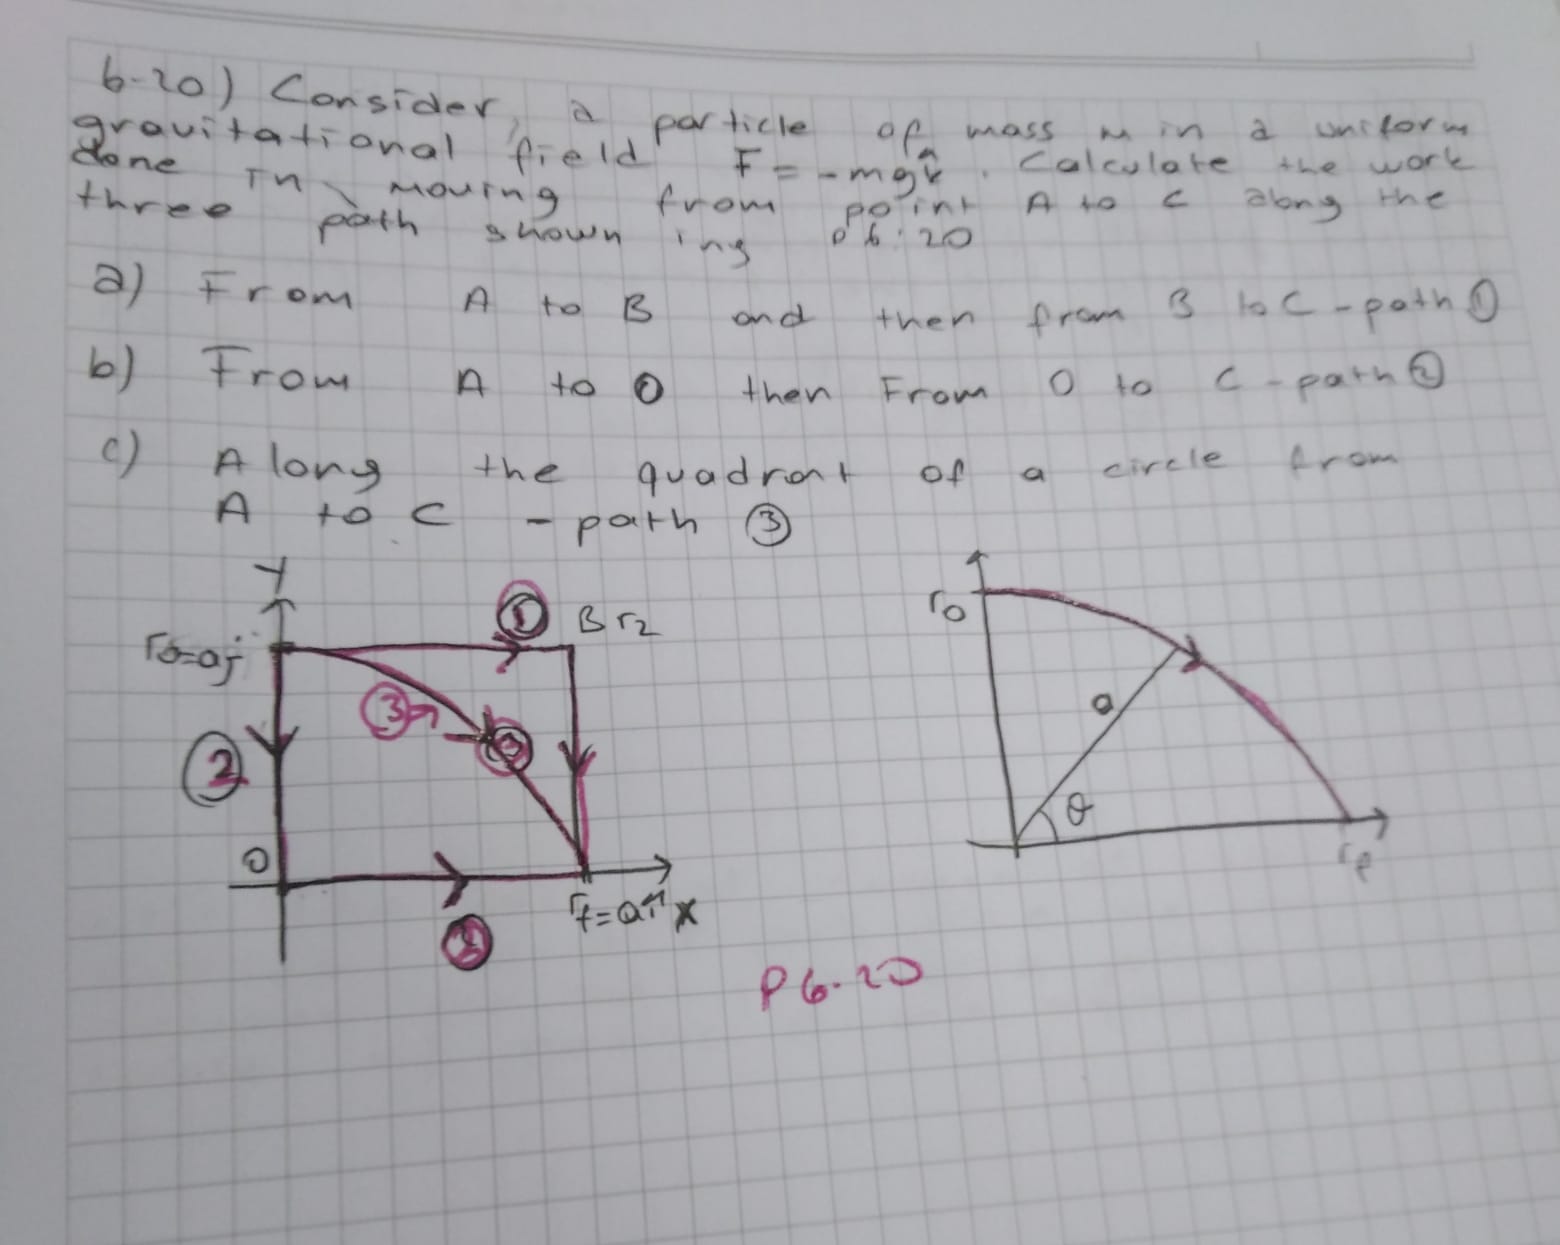 6-20) Consider, a particle of mass m in a uniform
gravitational field F = -mgk̂. Calculate the work
done in moving from point A to C along the
three path shown ing p6.20
a) From A to B and then from B to C - path ①
b) From A to O then From O to C - path ②
c) Along the quadrant of a circle from
A to C - path ③
Y
① B r2
r0=aj
③
②
O
rf=aî X
r0
a
θ
rf
P6.20